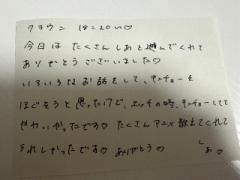 クラウン 18:20in♡
今日は たくさん しあと 遊んでくれて
ありがとう ございました♡
いろいろな お話をして、キンチョーを
ほぐそうと 思ったけど、エッチの時、キンチョーしてて
かわいかったです♡ たくさん アニメ 教えてくれて
うれしかったです♡ ありがとう♡
しあ♡